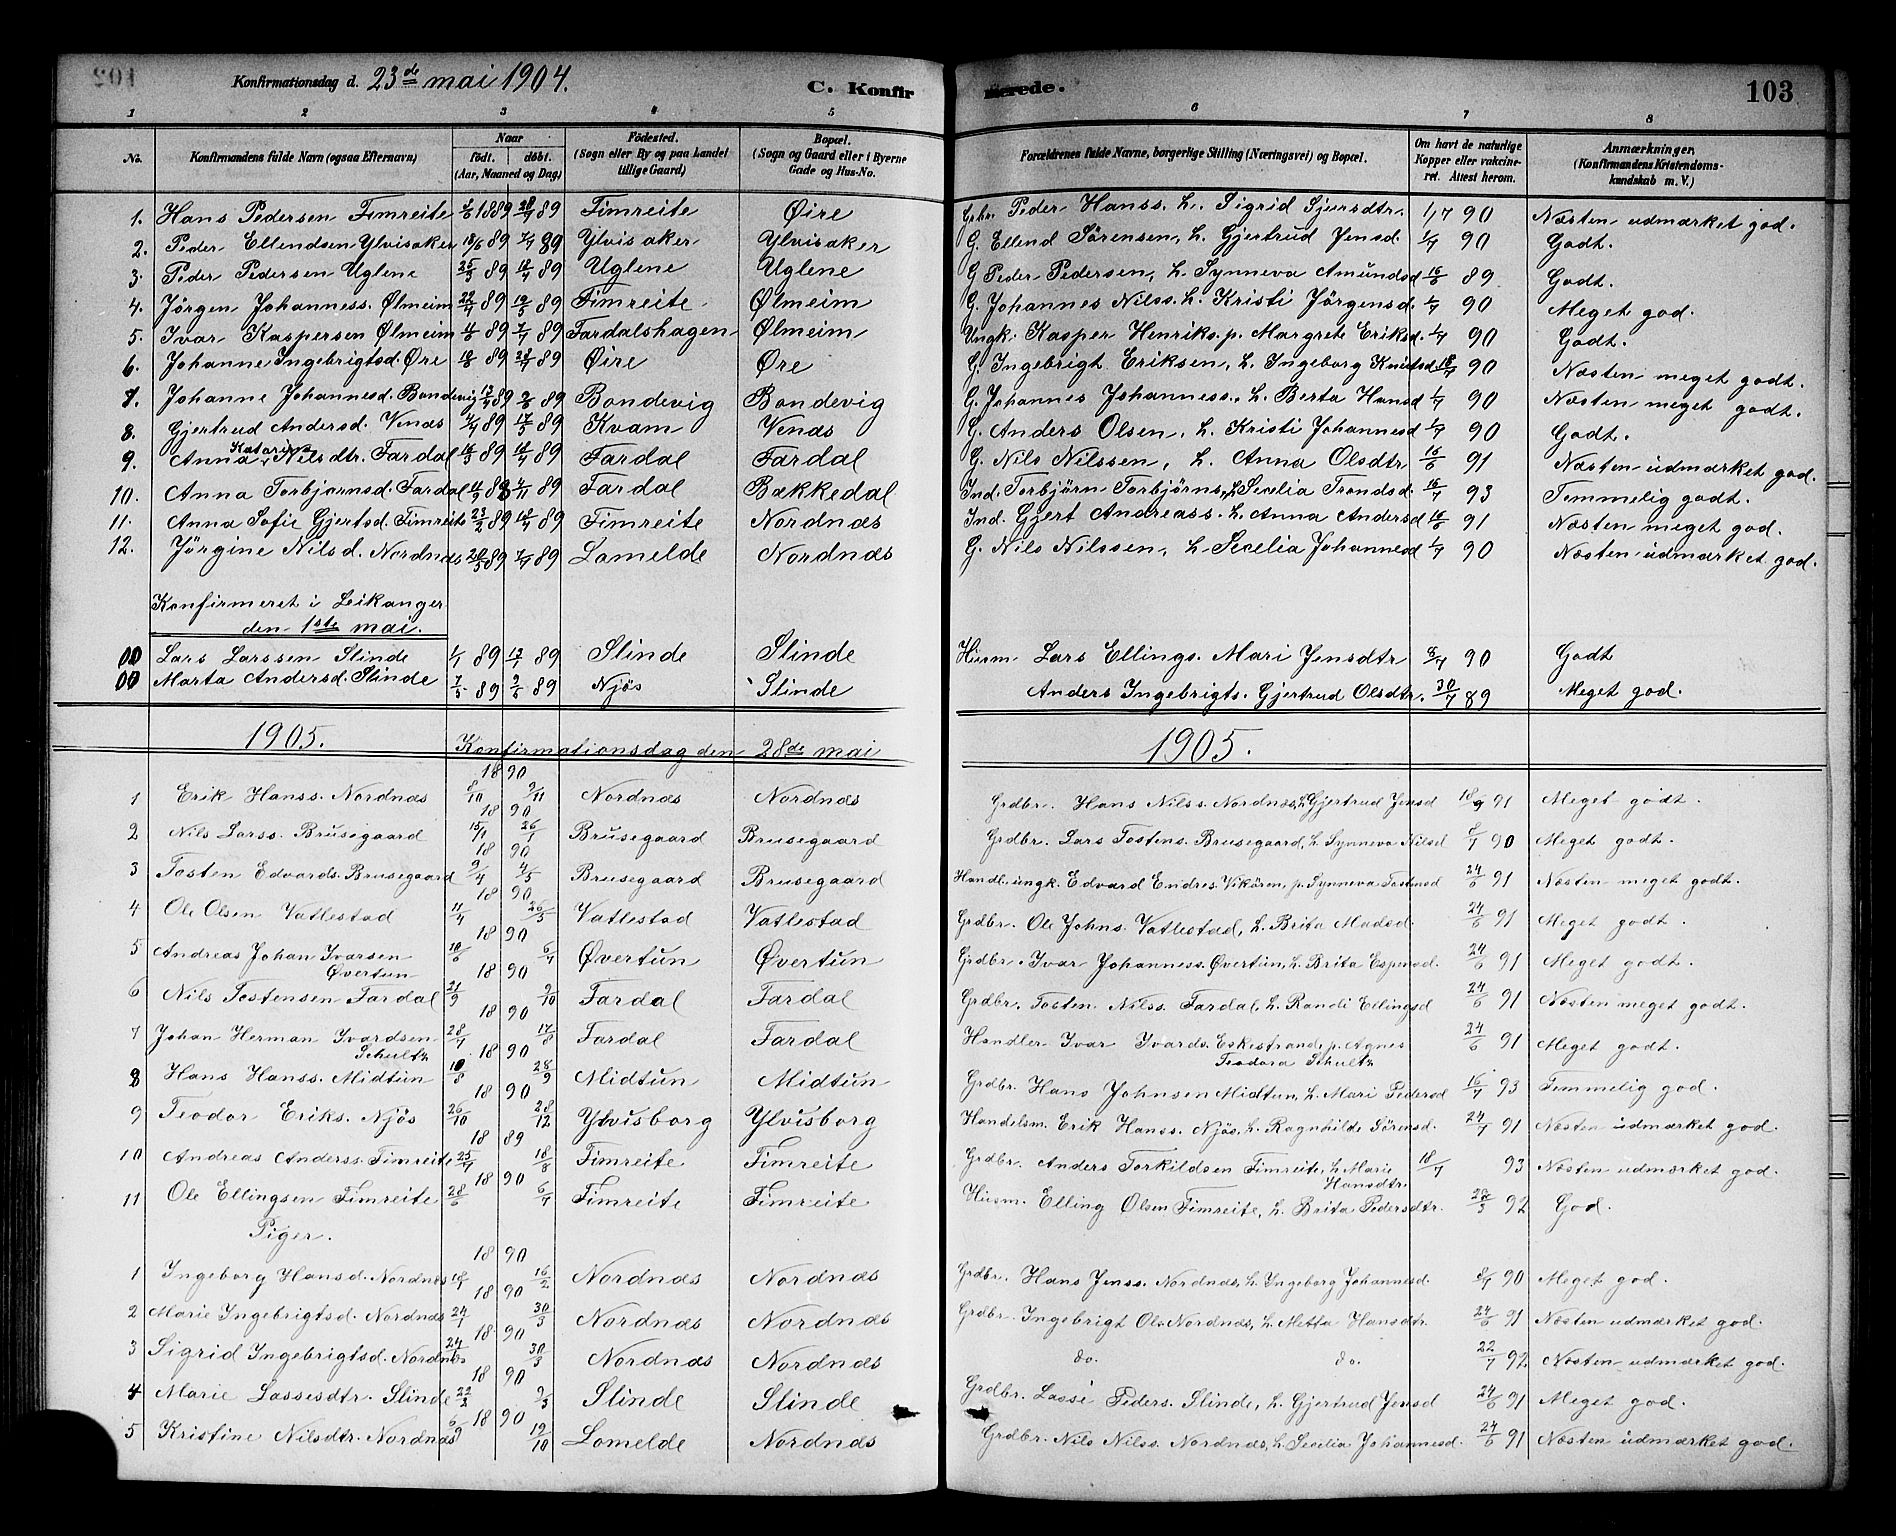 Konfirmationsdag d. 23de mai 1904. C. Konfirmerede. 103
1 2 3 4 5 6 7 8
No. Konfirmandens fulde Navn (ogsaa Efternavn) Naar födt. döbt. (Aar, Maaned og Dag) Födested. (Sogn eller By og paa Landet tillige Gaard) Bopæl. (Sogn og Gaard eller i Byerne Gade og Hus-No. Forældrenes fulde Navne, borgerlige Stilling (Næringsvei) og Bopæl. Om havt de naturlige Kopper eller vakcineret. Attest herom. Anmærkninger. (Konfirmandens Kristendomskundskab m. V.)
1. Hans Pedersen Timreite 1889 28/4 89 Timreite Øire Grbr. Peder Hanss. h. Sigrid Sjursdtr. 1/7 90 Næsten udmærket god.
2. Peder Ellendsen Ylvisaker 18/6 89 7/7 89 Ylvisaker Ylvisaker G. Ellend Sörensen, h. Gjertrud Jensd. 1/7 90 Godt.
3. Peder Pedersen Uglene 25/3 89 89 Uglene Uglene G. Peder Pedersen, h. Synneva Amundsd 16/6 89 Godt.
4. Jörgen Johanness. Ølmeim 22/4 89 19/5 89 Timreite Ølmeim G. Johannes Nilss. h. Kristi Jörgensd. 1/7 90 Meget god.
5. Ivar Kaspersen Ølmeim 89 7/7 89 Fardalshagen Ølmeim Ungk. Kasper Henriks. p. Margrete Eriksd. 1/7 90 Godt.
6. Johanne Ingebrigtsd. Øre 89 89 Øire Øre G. Ingebrigt Eriksen, h. Ingeborg Knutsd 18/7 90 Næsten meget godt.
7. Johanne Johannesd. Bondevig 13/4 89 89 Bondevig Bondevig G. Johannes Johanness. h. Berta Hansd 1/7 90 Næsten meget godt.
8. Gjertrud Andersd. Venæs 89 17/3 89 Kvam Venæs G. Anders Olsen, h. Kristi Johannesd 1/7 90 Godt.
9. Anna Katarina Nilsdtr. Fardal 89 89 Fardal Fardal G. Nils Nilssen, h. Anna Olsdtr 16/6 91 Næsten udmærket god.
10. Anna Torbjørnsd. Fardal 89 89 Fardal Bakkedal Ind. Torbjörn Torbjörns, h. Secelia Trondsd. 16/7 93 Temmelig godt.
11. Anna Sofie Gjertsd. Timreite 23/2 89 89 Timreite Nordnæs Ind. Gjert Andreass. h. Anna Andersd 16/6 91 Næsten meget god.
12. Jörgine Nilsd. Nordnæs 89 7/7 89 Lomelde Nordnæs G. Nils Nilssen, h. Secelia Johannesd 1/7 90 Næsten udmærket god.
Konfirmeret i Leikanger
den 1ste mai.
00 Lars Larssen Slinde 1/1 89 89 Slinde Slinde Husm. Lars Ellings. Mari Jensdtr 8/7 90 Godt
00 Marta Andersd. Slinde 7/5 89 9/6 89 Njøs Slinde Anders Ingebrigts. Gjertrud Olsdtr. 30/7 89 Meget god.
1905. Konfirmationsdag den 28de mai 1905.
18 90
1 Erik Hanss. Nordnæs 8/10 9/11 Nordnæs Nordnæs Grdbr. Hans Nilss. Nordnæs, h. Gjertrud Jensd 18/9 91 Meget godt.
18 90
2 Nils Larss. Brusegaard 15/1 26/1 Brusegaard Brusegaard Grdbr. Lars Tostens. Brusegaard, h. Synneva Nilsd 90 Meget godt.
18 90
3 Tosten Edvards. Brusegaard 9/4 4/5 Brusegaard Brusegaard Handl. ungk. Edvard Endres. Vikören, p. Synneva Tostensd 24/6 91 Næsten meget godt.
18 90
4 Ole Olsen Vatlestad 11/4 26/5 Vatlestad Vatlestad Grdbr. Ole Johns. Vatlestad, h. Brita Madsd. 24/6 91 Meget godt.
18 90
5 Andreas Johan Ivarsen Øvertun 10/6 6/7 Øvertun Øvertun Grdbr. Ivar Johanness. Øvertun, h. Brita Espensd. 24/6 91 Meget godt.
18 90
6 Nils Tostensen Fardal 21/9 9/10 Fardal Fardal Grdbr. Tosten Nilss. Fardal, h. Randi Ellingsd 24/6 91 Næsten meget godt.
18 90
7 Johan Herman Ivardsen Schultz 28/7 17/8 Fardal Fardal Handler Ivar Ivards. Eskestrand p. Agnes Teodora Schultz 24/6 91 Meget godt.
18 90
8 Hans Hanss. Midtun 10/8 28/9 Midtun Midtun Grdbr. Hans Johnsen Midtun, h. Mari Pedersd 16/7 93 Temmelig god.
18 90
9 Teodor Eriks. Njøs 26/10 28/12 Ylvisborg Ylvisborg Handelsm. Erik Hanss. Njøs, h. Ragnhilde Sörensd. 24/7 91 Næsten udmærket god.
18 89
10 Andreas Anderss. Timreite 25/7 18/8 Timreite Timreite Grdbr. Anders Torkildsen Timreite, h. Marie Hansdtr. 18/7 93 Næsten udmærket god.
18 90
11 Ole Ellingsen Timreite 28/6 6/7 Timreite Timreite Husm. Elling Olsen Timreite, h. Brita Pedersdtr. 92 God.
Piger.
18 90
1 Ingeborg Hansd. Nordnæs 16/2 Nordnæs Nordnæs Grdbr. Hans Jenss. Nordnæs, h. Ingeborg Johannesd. 8/7 90 Meget god.
18 90
2 Marie Ingebrigtsd. Nordnæs 24/1 30/3 Nordnæs Nordnæs Grdbr. Ingebrigt Ols. Nordnæs, h. Metta Hansdtr. 24/6 91 Næsten udmærket god.
18 90
3 Sigrid Ingebrigtsd. Nordnæs 30/3 Nordnæs Nordnæs do. do. 22/7 92 Næsten udmærket god.
18 90
4 Marie Lassesdtr. Slinde 22/2 9/3 Slinde Slinde Grdbr. Lasse Peders. Slinde, h. Gjertrud Jensd 24/6 91 Meget god.
18 90
5 Kristine Nilsdtr. Nordnæs 6/9 19/10 Lomelde Nordnæs Grdbr. Nils Nilss. Nordnæs, h. Secilia Johannesd. 24/6 91 Næsten udmærket god.